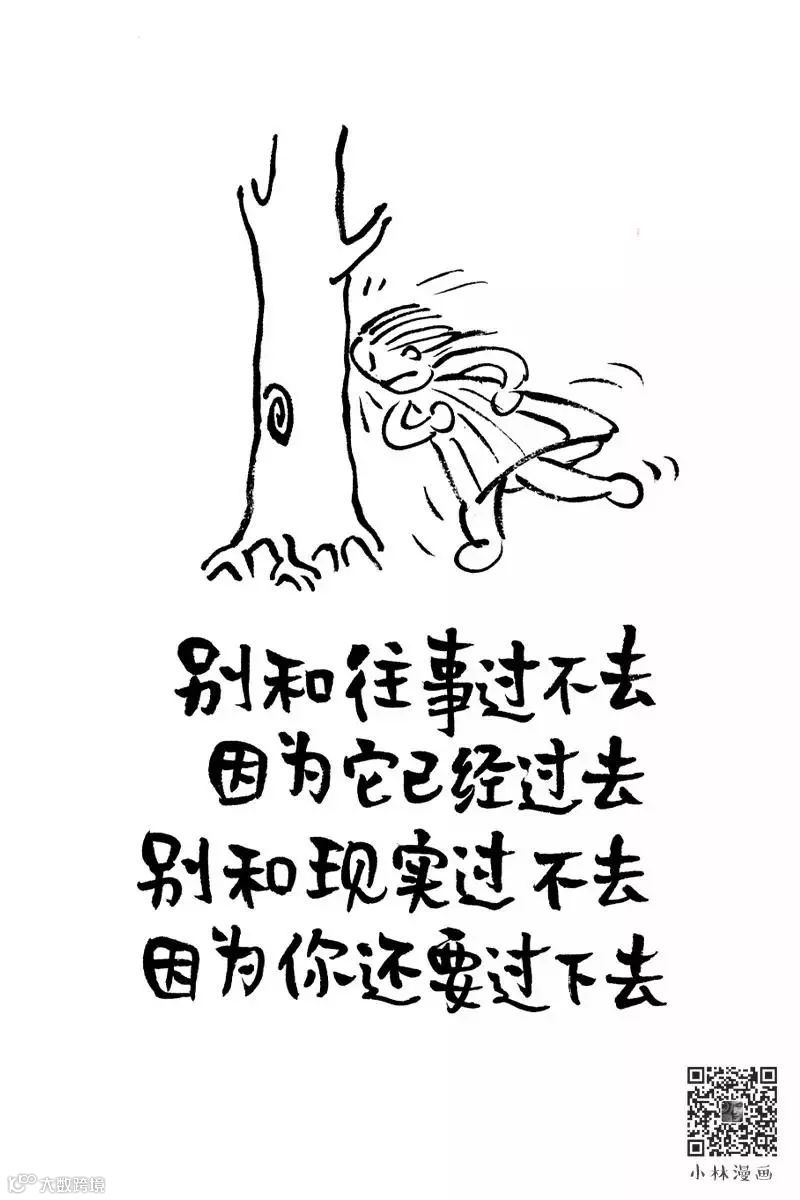 别和往事过不去
因为它已经过去
别和现实过不去
因为你还要过下去
小林漫画
大数跨境